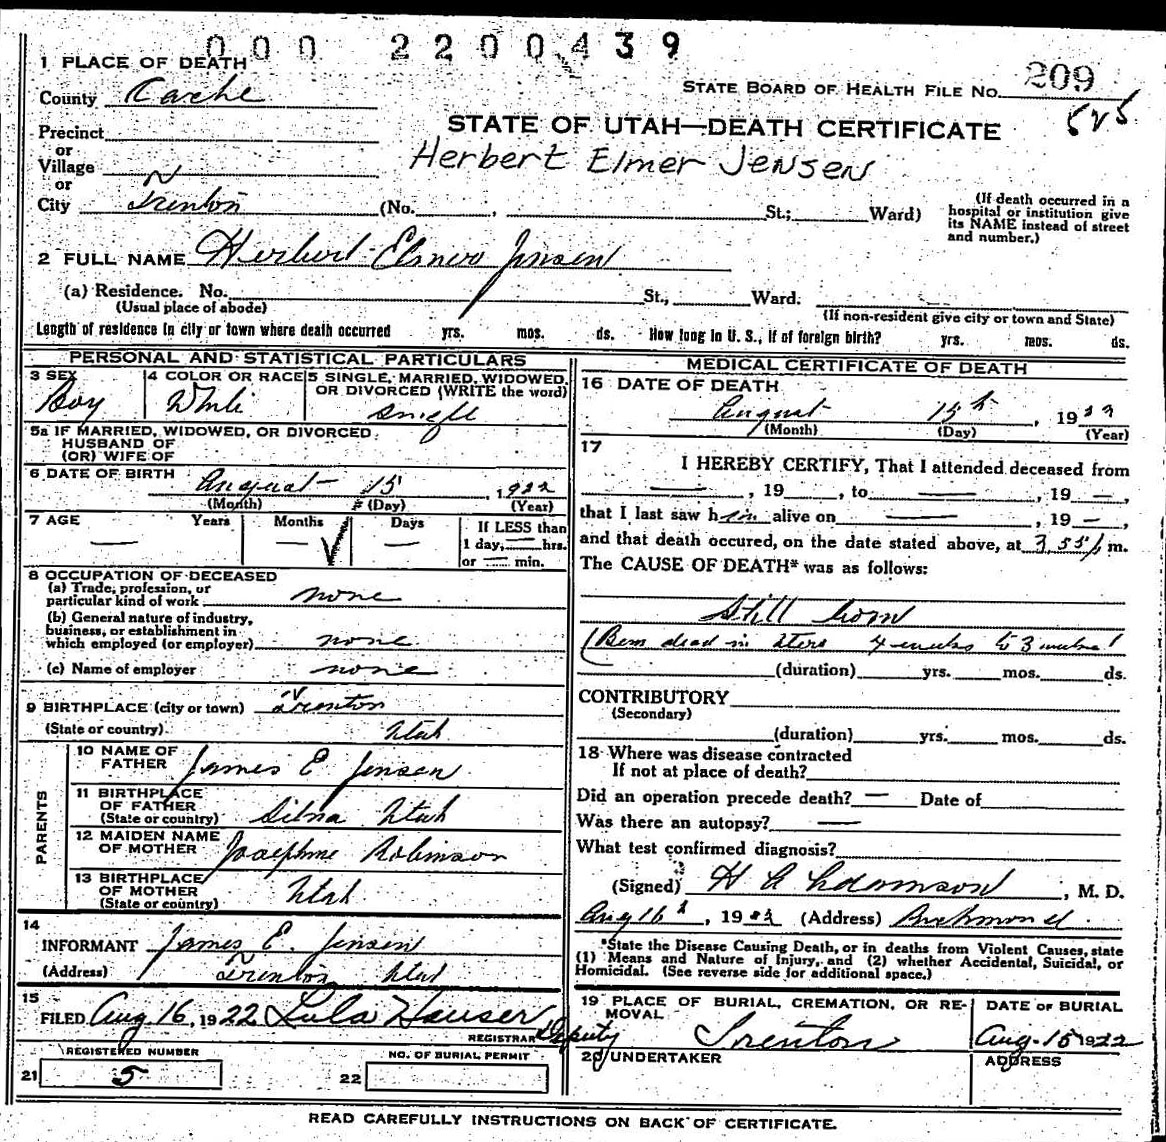 000 2200439
1 PLACE OF DEATH
STATE BOARD OF HEALTH FILE No. 209
County Cache
525
STATE OF UTAH—DEATH CERTIFICATE
Precinct
or
Village
Herbert Elmer Jensen
or
City Trenton (No. , St.; Ward)
(If death occurred in a
hospital or institution give
its NAME instead of street
and number.)
2 FULL NAME Herbert Elmer Jensen
(a) Residence. No. St., Ward.
(Usual place of abode) (If non-resident give city or town and State)
Length of residence in city or town where death occurred yrs. mos. ds. How long in U. S., if of foreign birth? yrs. mos. ds.
PERSONAL AND STATISTICAL PARTICULARS
3 SEX 4 COLOR OR RACE 5 SINGLE, MARRIED, WIDOWED,
OR DIVORCED (WRITE the word)
Boy White Single
5a IF MARRIED, WIDOWED, OR DIVORCED
HUSBAND OF
(OR) WIFE OF
6 DATE OF BIRTH August 15, 1922
(Month) (Day) (Year)
7 AGE Years Months Days If LESS than
— — — 1 day, — hrs.
or — min.
8 OCCUPATION OF DECEASED
(a) Trade, profession, or
particular kind of work none
(b) General nature of industry,
business, or establishment in
which employed (or employer) none
(c) Name of employer none
9 BIRTHPLACE (city or town) Trenton
(State or country) Utah
PARENTS
10 NAME OF
FATHER James E Jensen
11 BIRTHPLACE
OF FATHER
(State or country) Utah
12 MAIDEN NAME
OF MOTHER Josephine Robinson
13 BIRTHPLACE
OF MOTHER
(State or country) Utah
14
INFORMANT James E. Jensen
(Address) Trenton Utah
15
FILED Aug. 16, 1922 Lula Hauser Deputy
REGISTRAR
REGISTERED NUMBER NO. OF BURIAL PERMIT
21 5 22
MEDICAL CERTIFICATE OF DEATH
16 DATE OF DEATH
August 15th, 1922
(Month) (Day) (Year)
17
I HEREBY CERTIFY, That I attended deceased from
—, 19 , to —, 19 —,
that I last saw him alive on —, 19 —,
and that death occured, on the date stated above, at 3 55 p m.
The CAUSE OF DEATH* was as follows:
Still born
(Been dead in utero weeks to 3 weeks)
(duration) yrs. mos. ds.
CONTRIBUTORY
(Secondary)
(duration) yrs. mos. ds.
18 Where was disease contracted
If not at place of death?
Did an operation precede death? — Date of
Was there an autopsy? —
What test confirmed diagnosis?
(Signed) H A Adamson, M. D.
Aug 16, 1922 (Address) Richmond
*State the Disease Causing Death, or in deaths from Violent Causes, state
(1) Means and Nature of Injury, and (2) whether Accidental, Suicidal, or
Homicidal. (See reverse side for additional space.)
19 PLACE OF BURIAL, CREMATION, OR RE-
MOVAL
Trenton
DATE OF BURIAL
Aug. 15 1922
20 UNDERTAKER ADDRESS
READ CAREFULLY INSTRUCTIONS ON BACK OF CERTIFICATE.